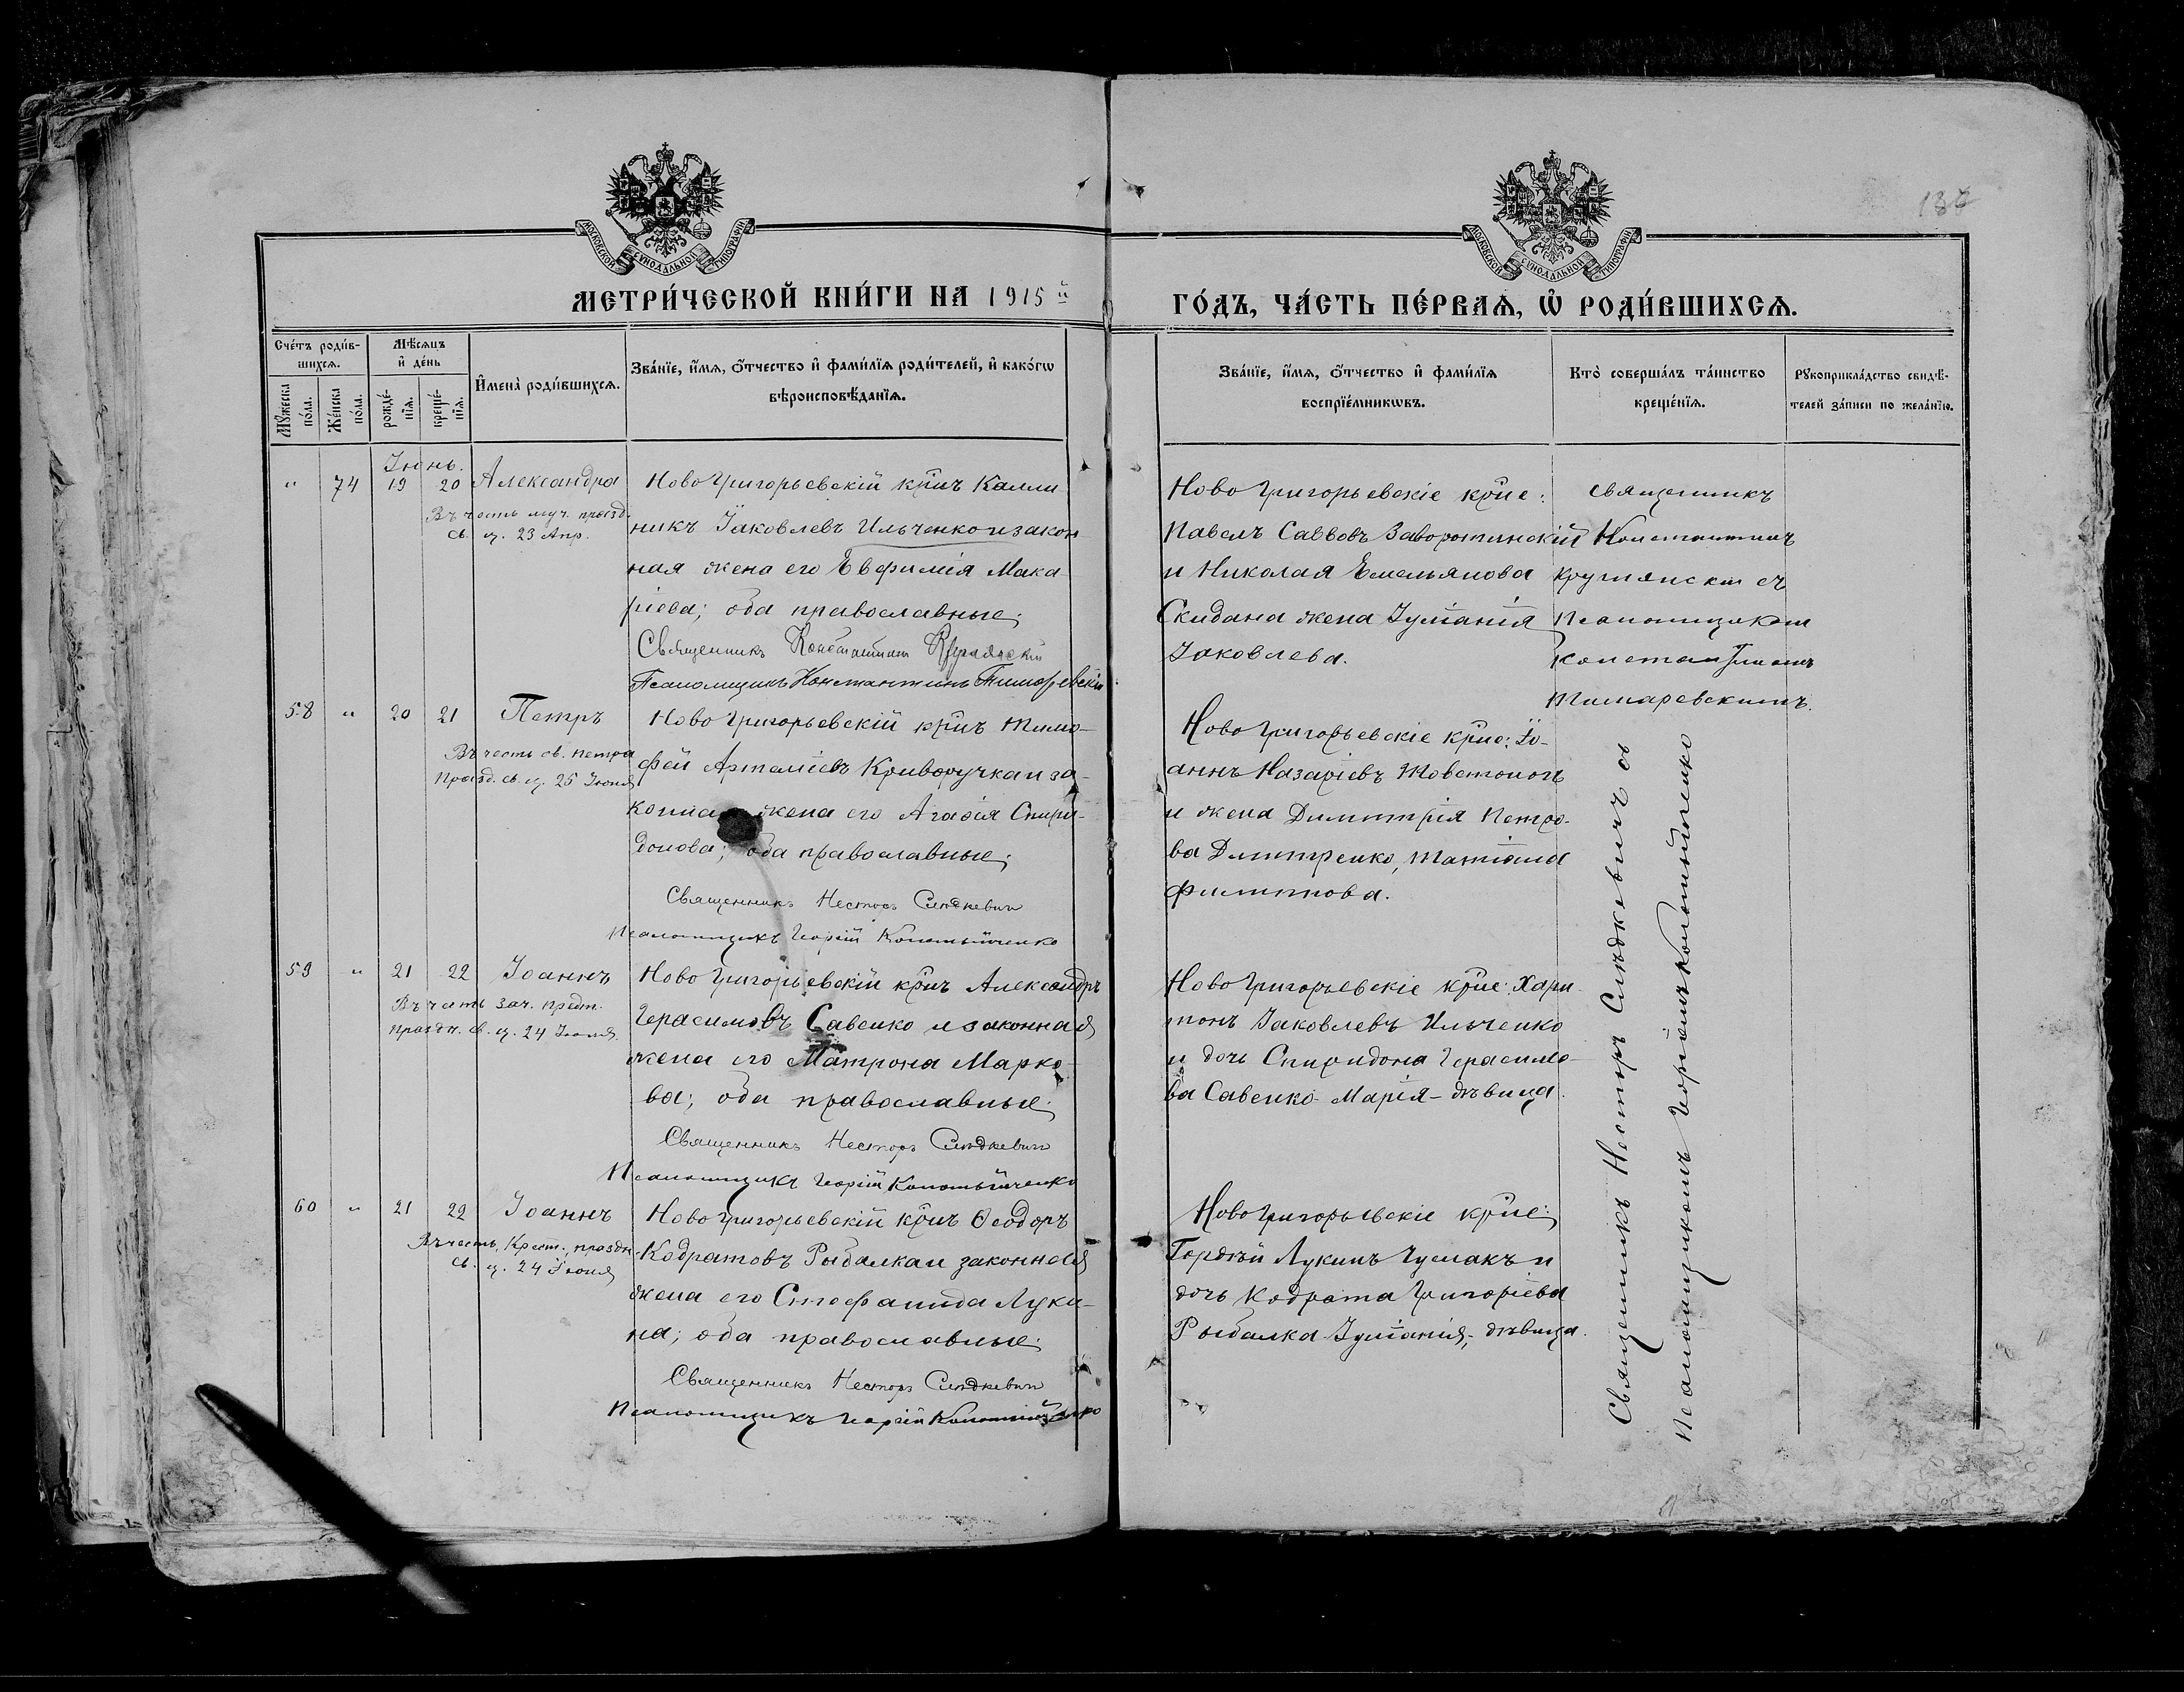 137
МОСКОВСКОЙ СѴНОДАЛЬНОЙ ТИПОГРАФІИ
МОСКОВСКОЙ СѴНОДАЛЬНОЙ ТИПОГРАФІИ
МЕТРИ́ЧЕСКОЙ КНИ́ГИ НА 1915й
ГО́ДЪ, ЧА́СТЬ ПЕ́РВАѦ, Ѡ҆ РОДИ́ВШИХСѦ.
Сче́тъ роди́в-
шихсѧ.
Мꙋ́жеска
по́ла.
Же́нска
по́ла.
Мѣ́сѧцъ
и҆ де́нь
рожде́-
нїѧ.
креще́-
нїѧ.
И҆мена̀ роди́вшихсѧ.
Зва́нїе, и҆́мѧ, ѻ҆́тчество и҆ фами́лїѧ роди́телей, и҆ како́гѡ
вѣроисповѣ́данїѧ.
Зва́нїе, и҆́мѧ, ѻ҆́тчество и҆ фами́лїѧ
воспрїе́мникѡвъ.
Кто̀ соверша́лъ та́инство
креще́нїѧ.
Рꙋкоприкла́дство свидѣ́-
телей за́писи по жела́нїю.
Іюнь.
" 74 19 20 Александра
Въ честь муч. празд.
св. ц. 23 Апр.
Ново Григорьевскій крнъ Калли
никъ Іаковлевъ Ильченко и закон
ная жена его Евфимія Мака
ріева; оба православные;
Священникъ Константинъ Крутянскій
Псаломщикъ Константинъ Тимаревскій
Ново Григорьевскіе крне:
Павелъ Саввовъ Заворотинскій
и Николая Емельянова
Скидана жена Іуліанія
Іаковлева.
Священникъ
Константинъ
Крутянскій съ
Псаломщикомъ
Константиномъ
Тимаревскимъ.
58 " 20 21 Петръ
Въ честь св. Петра
Празд. св. ц. 25 Іюня
Ново Григорьевскій крнъ Тимо-
фей Артеміевъ Криворучка и за-
конная жена его Агафія Спири-
донова; оба православные;
Священникъ Несторъ Слѣдкевичъ
Псаломщикъ Георгій Коломыйченко
Ново Григорьевскіе крне: Іо-
аннъ Назаріевъ Товстоног
и жена Димитрія Петро-
ва Дмитренко, Татіана
Филиппова.
59 " 21 22 Іоаннъ
Въ честь зач. предт.
праздн. св. ц. 24 Іюня.
Ново Григорьевскій крнъ Александръ
Герасимовъ Савенко и законная
жена его Матрона Марко-
ва; оба православные;
Священникъ Несторъ Слѣдкевичъ
Псаломщикъ Георгій Коломыйченко
Ново Григорьевскіе крне: Хари
тонъ Іаковлевъ Ильченко
и дочь Спиридона Герасимо-
ва Савенко Марія - дѣвица.
60 " 21 22 Іоаннъ
Въ честь, Крест., праздн.
св. ц. 24 Іюня
Ново Григорьевскій крнъ Ѳеодоръ
Кодратовъ Рыбалка и законная
жена его Стефанида Луки-
на; оба православные;
Священникъ Несторъ Слѣдкевичъ
Псаломщикъ Георгій Коломыйченко
Ново Григорьевскіе крне;
Гордѣй Лукинъ Чумакъ и
дочь Кодрата Григоріева
Рыбалка Іуліанія, дѣвица.
Священникъ Несторъ Слѣдкевичъ съ
Псаломщикомъ Георгіемъ Коломыйченко